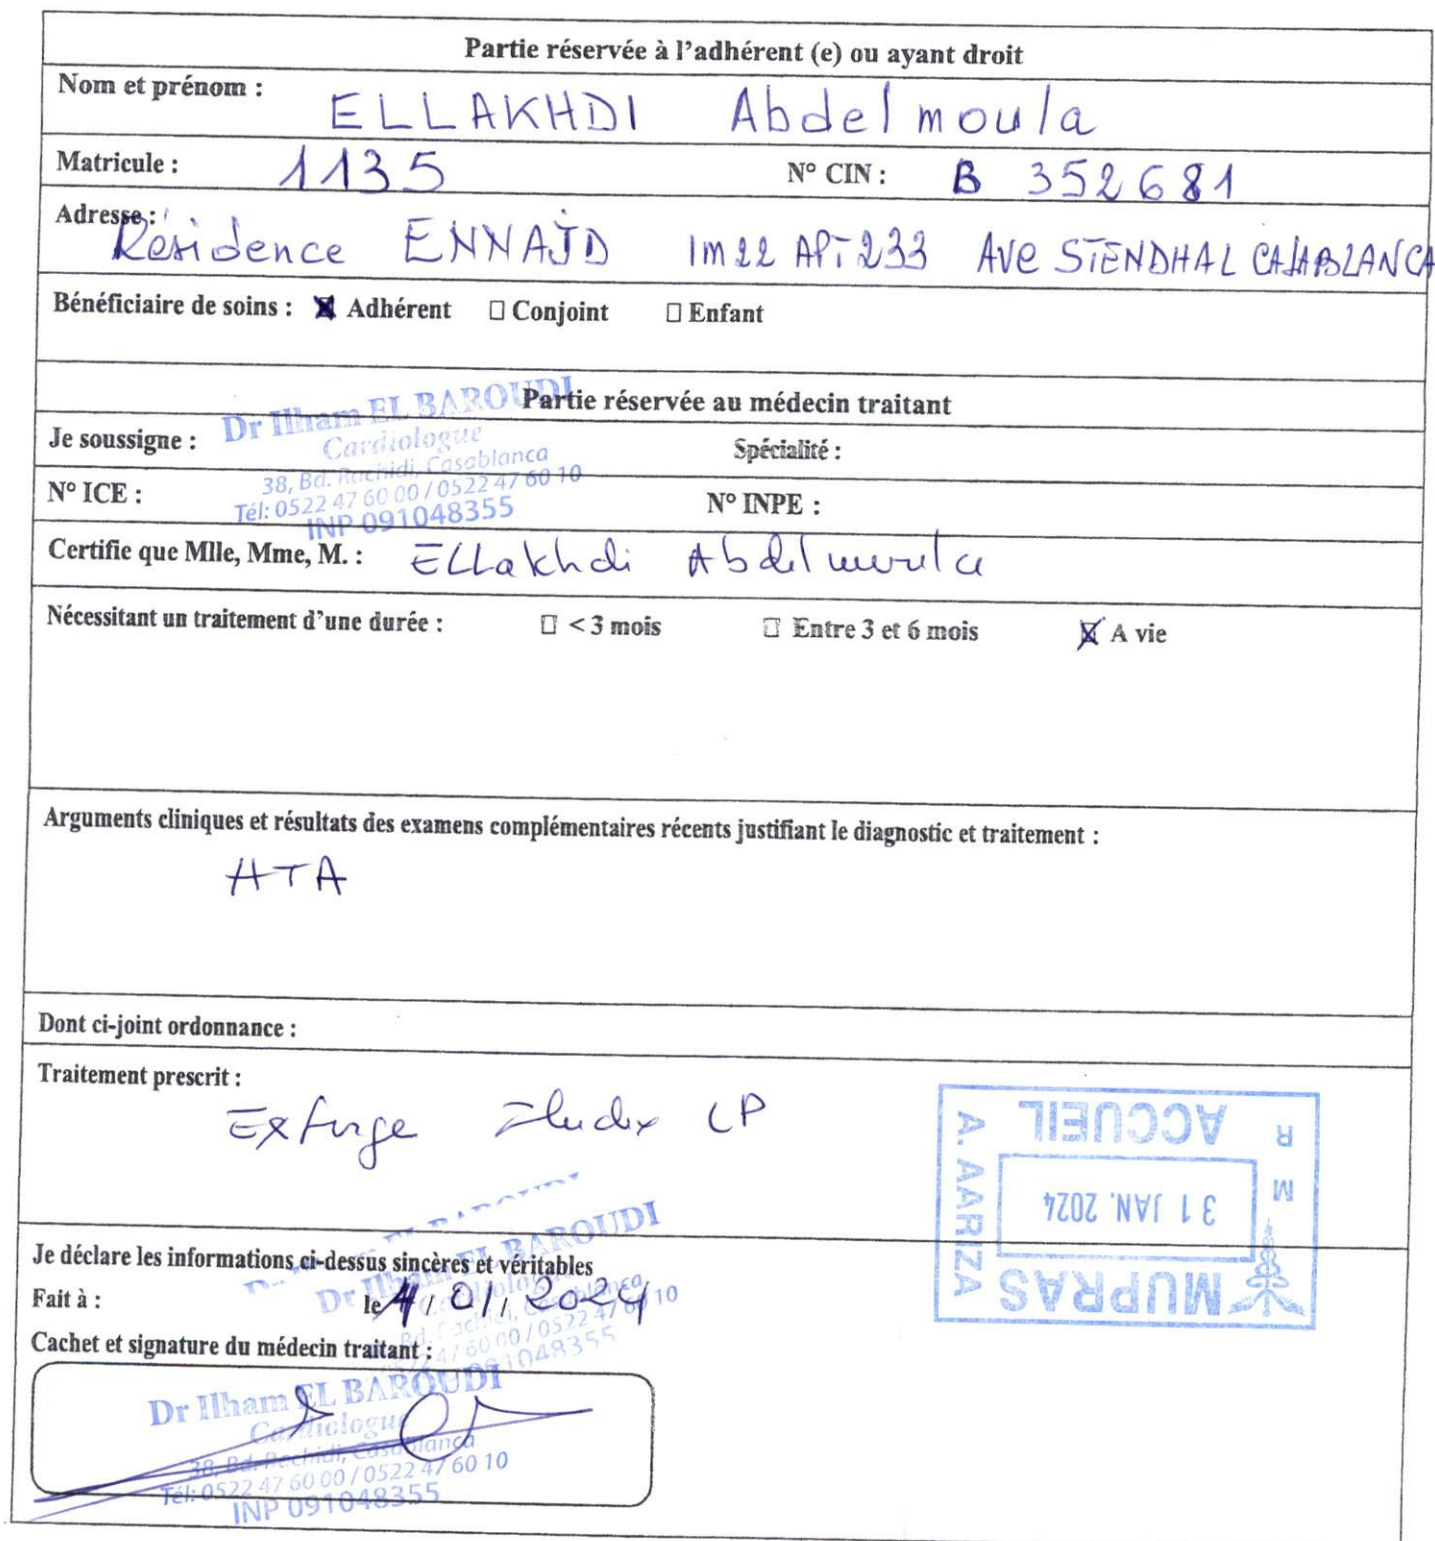 Partie réservée à l'adhérent (e) ou ayant droit
Nom et prénom : ELLAKHDI Abdelmoula
Matricule : 1135 N° CIN : B 352681
Adresse : Résidence ENNAJD Im 22 APT 233 AVe STENDHAL CASABLANCA
Bénéficiaire de soins : Adhérent Conjoint Enfant
Partie réservée au médecin traitant
Dr Ilham EL BAROUDI
Cardiologue
38, Bd. Rachidi, Casablanca
Tél: 0522 47 60 00 / 0522 47 60 10
INP 091048355
Je soussigne : Spécialité :
N° ICE : N° INPE :
Certifie que Mlle, Mme, M. : ELLakhdi Abdelmoula
Nécessitant un traitement d'une durée : < 3 mois Entre 3 et 6 mois A vie
Arguments cliniques et résultats des examens complémentaires récents justifiant le diagnostic et traitement :
HTA
Dont ci-joint ordonnance :
Traitement prescrit :
Exforge CP
MUPRAS
31 JAN. 2024
ACCUEIL
A. AARIZA
R M
Je déclare les informations ci-dessus sincères et véritables
Dr Ilham EL BAROUDI
Fait à : le 4/01/2024
Cachet et signature du médecin traitant :
Dr Ilham EL BAROUDI
Cardiologue
38, Bd. Rachidi, Casablanca
Tél: 0522 47 60 00 / 0522 47 60 10
INP 091048355